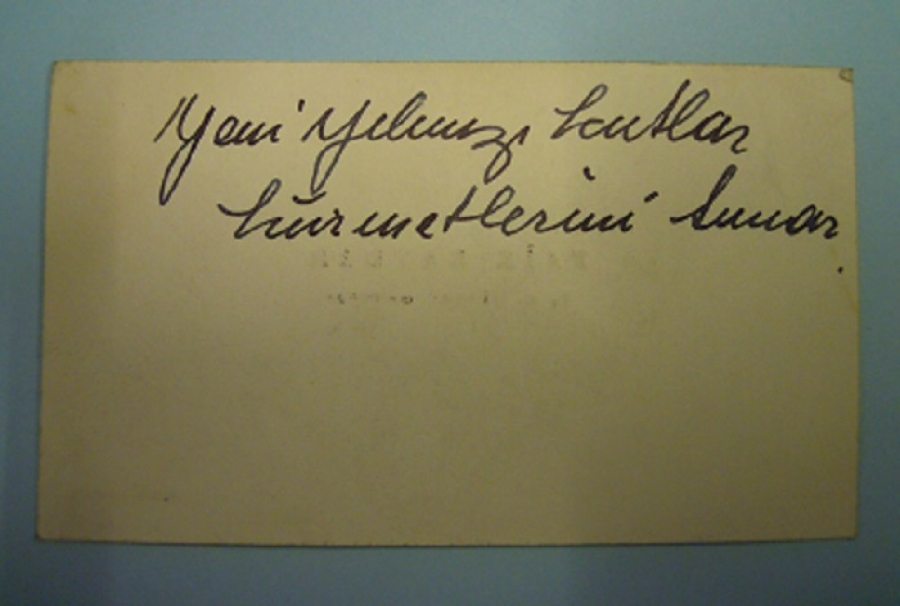 Yeni Yılınızı kutlar
hürmetlerini sunar.